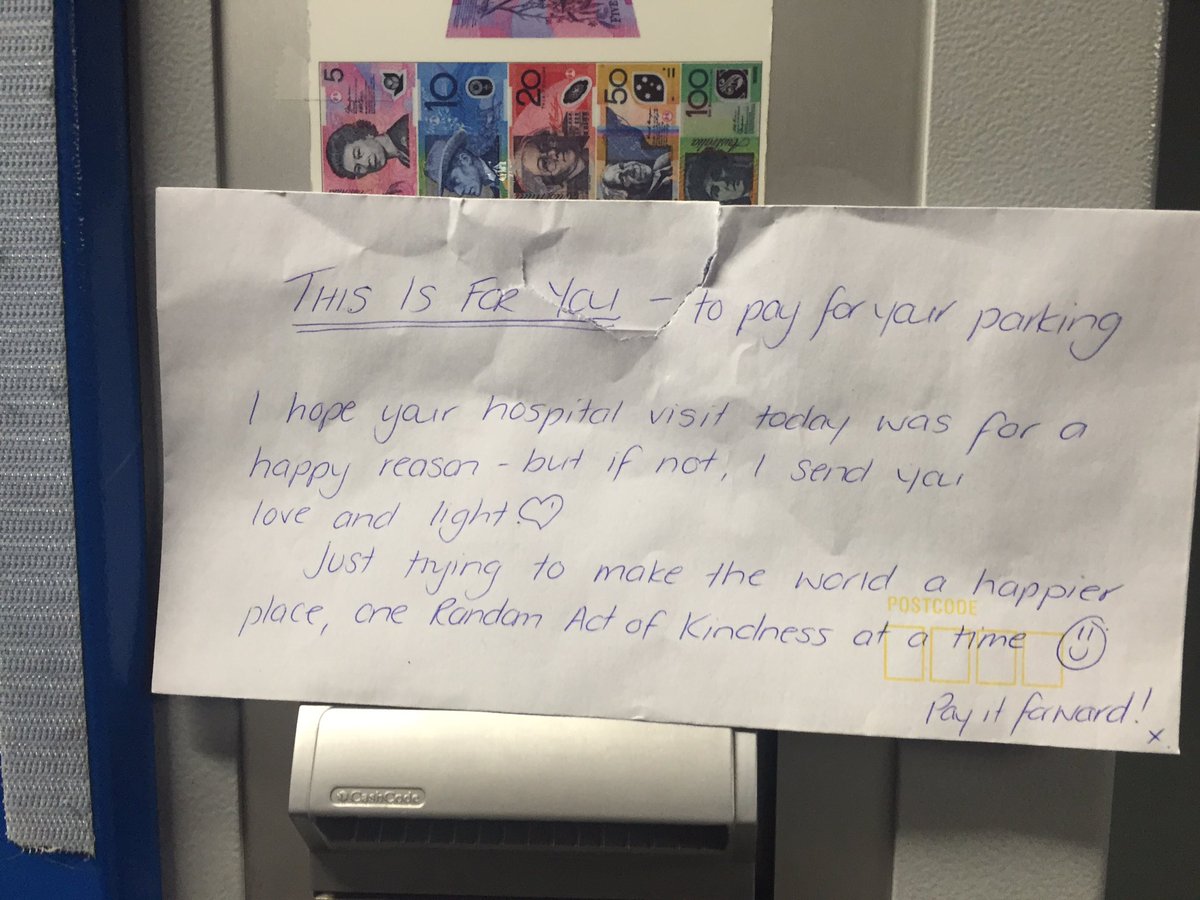 FIVE
5
10
20
50
100
Australia
THIS IS FOR YOU - to pay for your parking
I hope your hospital visit today was for a
happy reason - but if not, I send you
love and light!
Just trying to make the world a happier
place, one Random Act of Kindness at a time
POSTCODE
Pay it forward!
x
CashCode